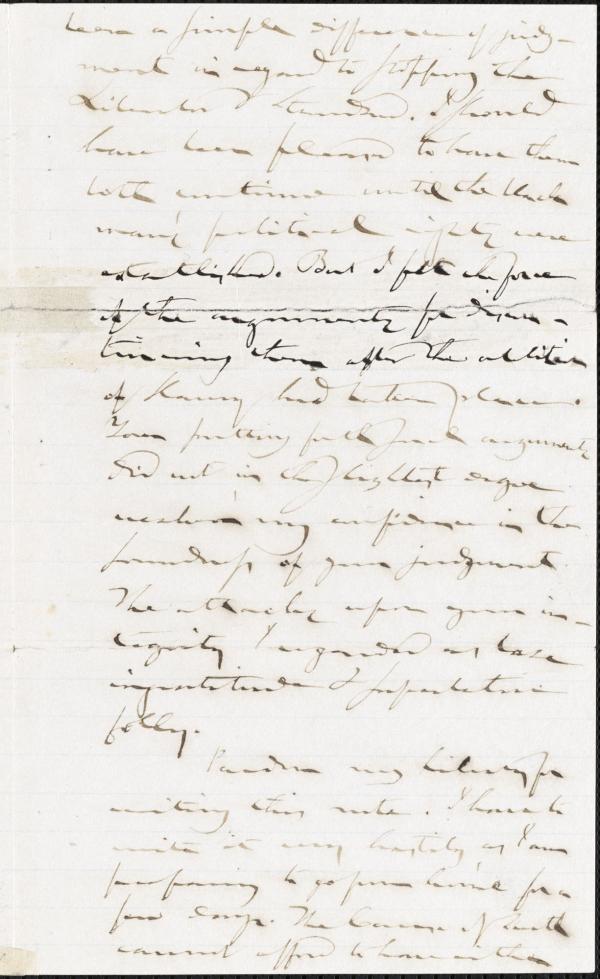 been a simple difference of judg-
ment in regard to stopping the
Liberator & Standard. I should
have been pleased to have them
both continue until the black
man's political rights were
established. But I felt the force
of the arguments for discon-
tinuing them after the abolition
of Slavery had taken place.
Your putting forth such arguments
did not in the slightest degree
weaken my confidence in the
soundness of your judgment.
The attacks upon your in-
tegrity I regarded as base
ingratitude & superlative
folly.
Pardon my liberty for
writing this note. I have to
write it very hastily as I am
preparing to go from home for a
few days. The Cause of truth
cannot afford to have either